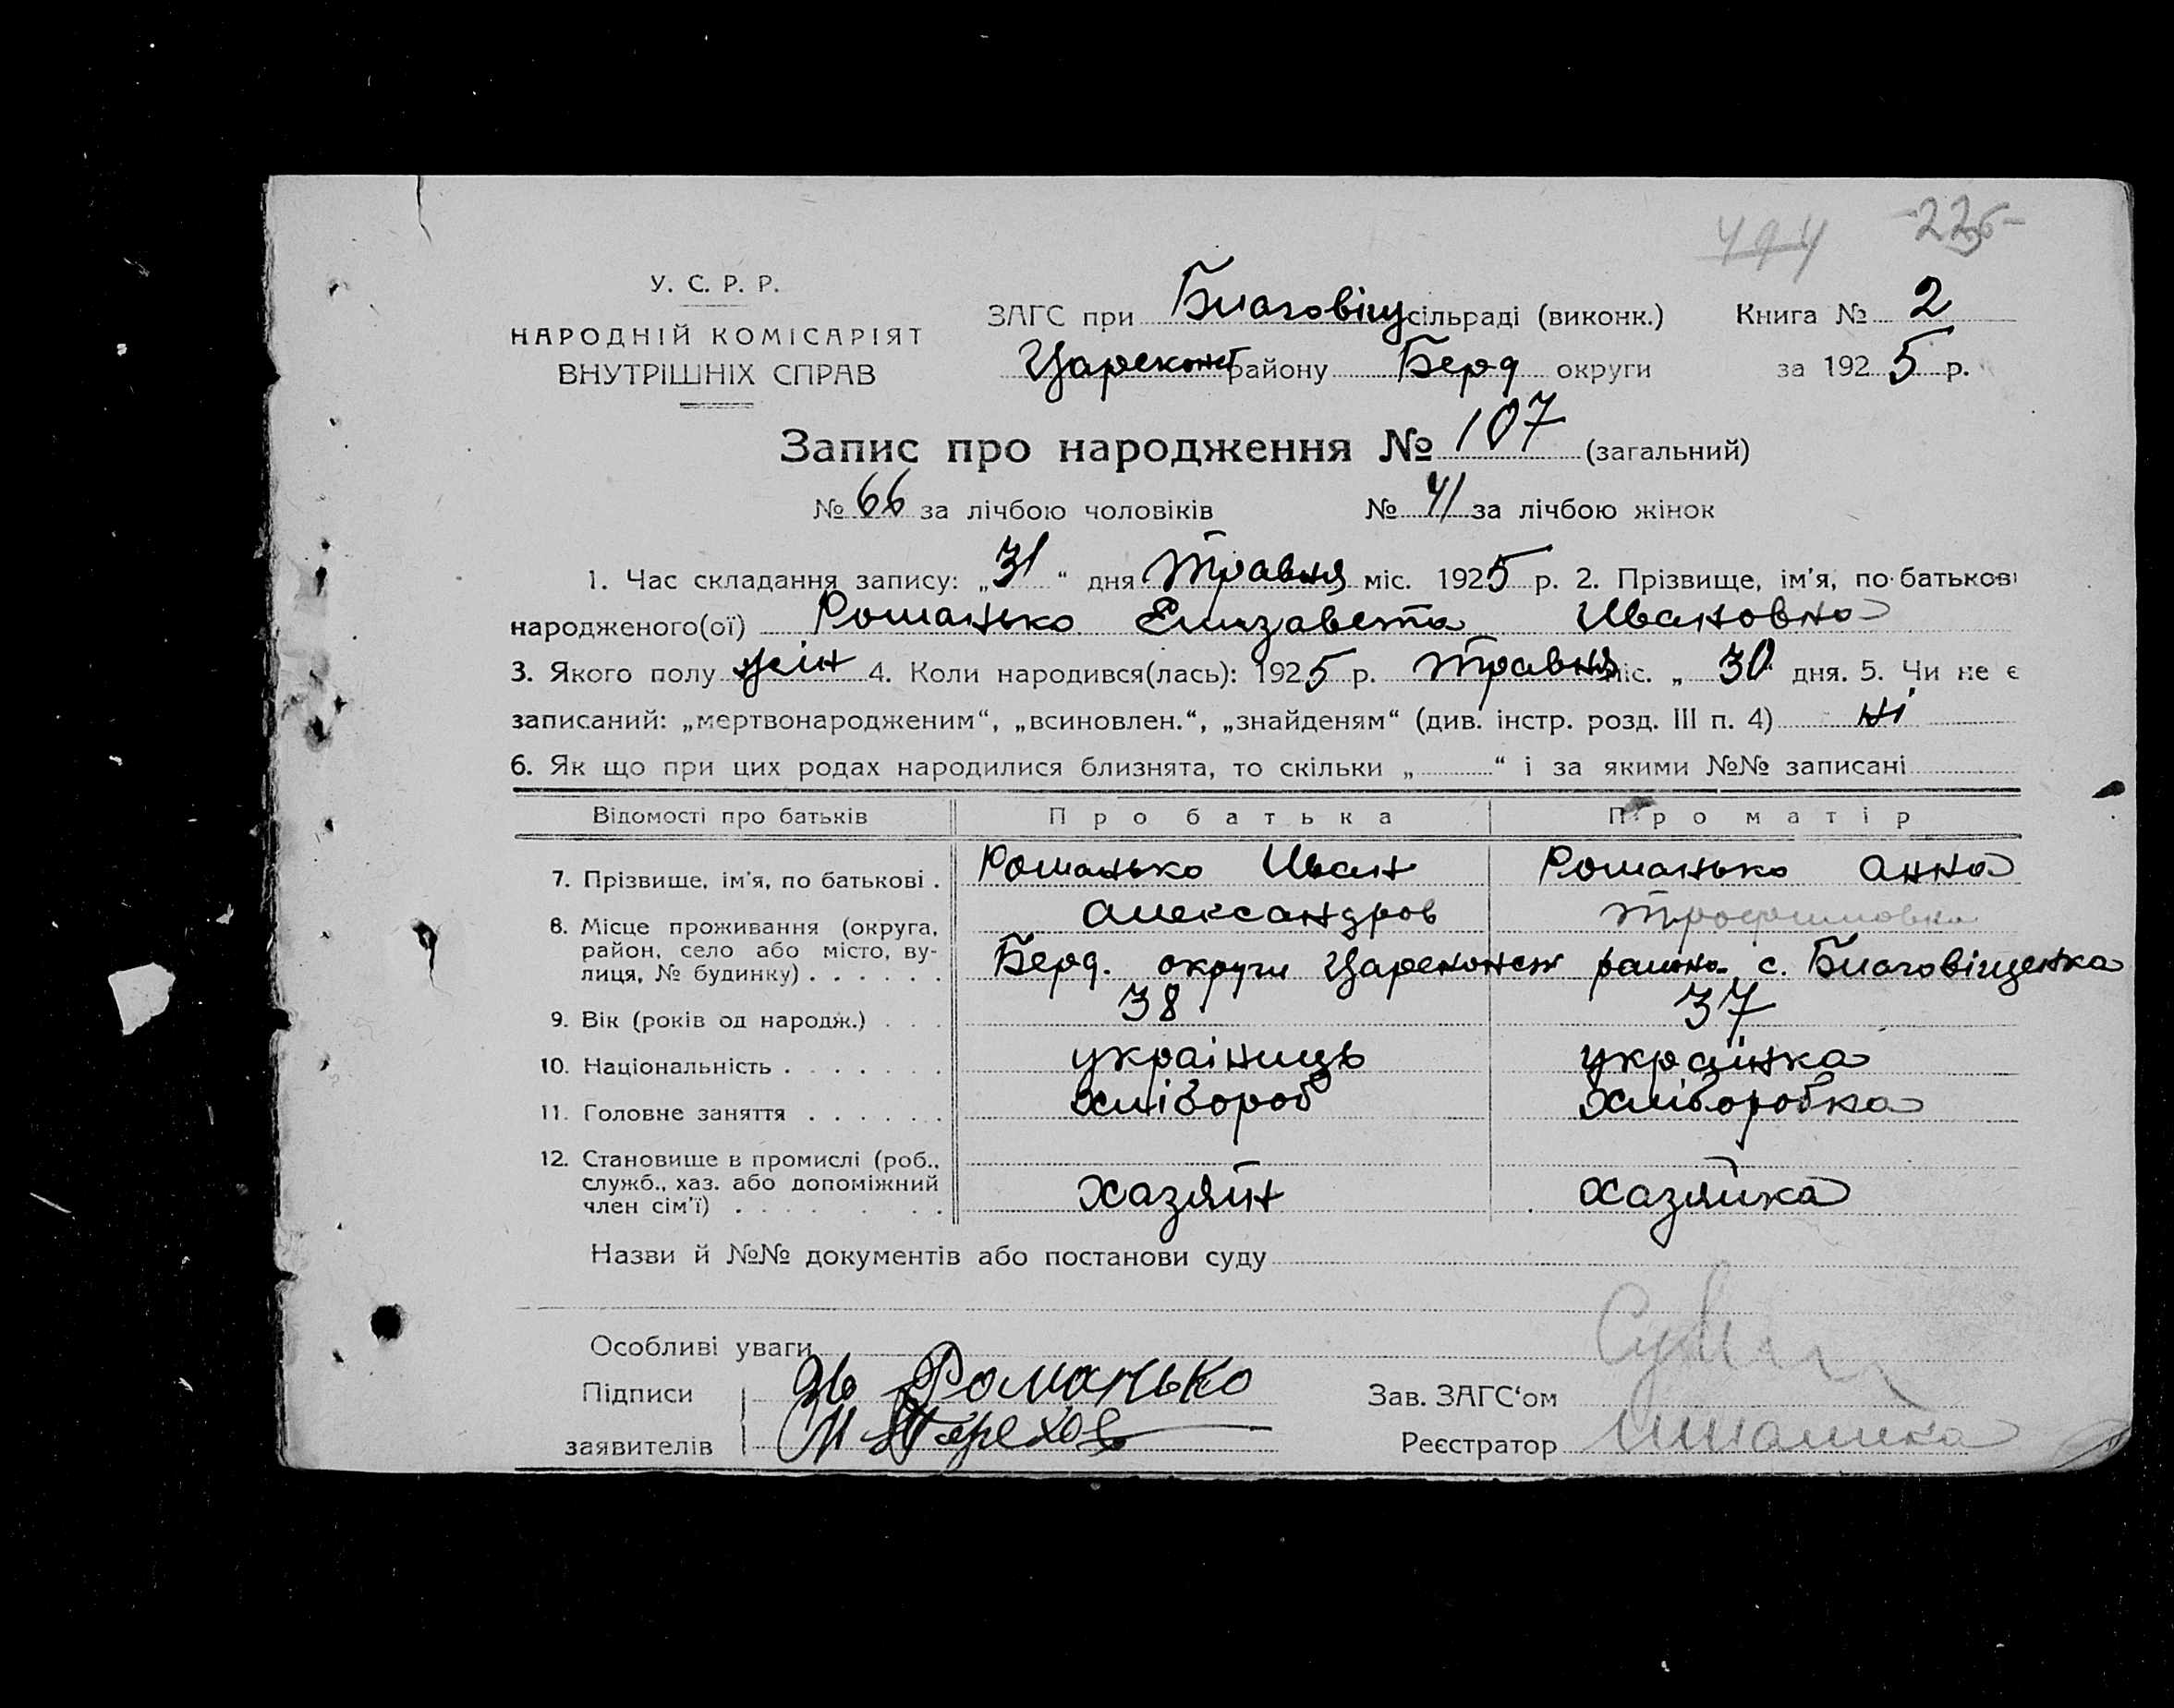 494 -225-
У. С. Р. Р.
НАРОДНІЙ КОМІСАРІЯТ
ВНУТРІШНІХ СПРАВ
ЗАГС при Благовіщ сільраді (виконк.) Книга № 2
Царекомст району Берд округи за 1925 р.
Запис про народження № 107 (загальний)
№ 66 за лічбою чоловіків № 41 за лічбою жінок
1. Час складання запису: „31“ дня Травня міс. 1925 р. 2. Прізвище, ім’я, по-батькові
народженого(ої) Романько Елизавета Ивановна
3. Якого полу жін 4. Коли народився(лась): 1925 р. Травня міс. „30 дня. 5. Чи не є
записаний: „мертвонародженим“, „всиновлен.“, „знайденям“ (див. інстр. розд. III п. 4) ні
6. Як що при цих родах народилися близнята, то скільки „ “ і за якими №№ записані
Відомості про батьків Про батька Про матір
7. Прізвище, ім’я, по батькові . Романько Иван Романько Анна
Александров Трофимовна
8. Місце проживання (округа, район, село або місто, вулиця, № будинку) . . . . . . Берд. округи Царекомст района с. Благовіщенка
9. Вік (років од народж.) . . . 38 37
10. Національність . . . . . . . україниць українка
11. Головне заняття . . . . . . хлібороб хліборобка
12. Становище в промислі (роб., служб., хаз. або допоміжний член сім’ї) . . . . . . . . хазяїн хазяйка
Назви й №№ документів або постанови суду
Особливі уваги
Підписи Ив Романько Зав. ЗАГС‘ом
заявителів И Терехов Реєстратор